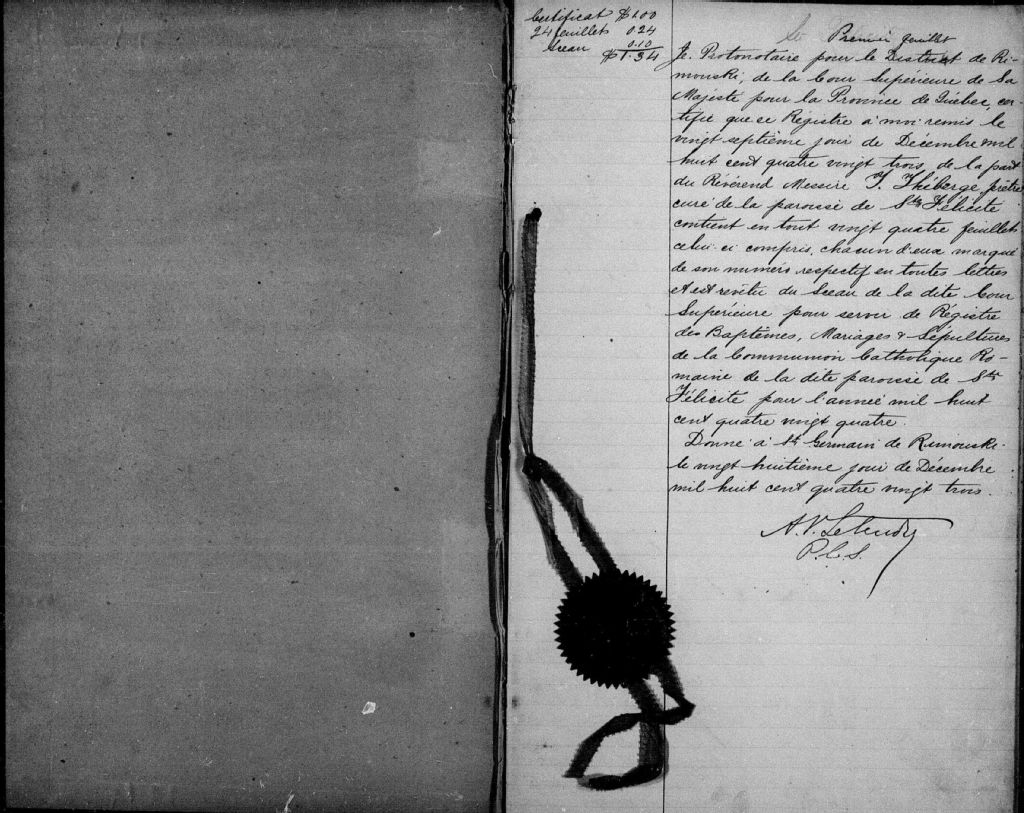 Certificat $1.00
24 feuillets 0 24
Sceau 0.10
$1.34
Premier feuillet
Je, Protonotaire pour le District de Ri-
mouski, de la Cour Supérieure de Sa
Majesté pour la Province de Québec, cer-
tifie que ce Régistre à moi remis le
vingt septième jour de Décembre mil
huit cent quatre vingt trois, de la part
du Révérend Messire T. Théberge, prêtre
curé de la paroisse de Ste Félicité
contient en tout vingt quatre feuillets
celui-ci compris, chacun d'eux marqué
de son numéro respectif en toutes lettres
et est revêtu du Sceau de la dite Cour
Supérieure pour servir de Régistre
des Baptêmes, Mariages & Sépultures
de la Communion Catholique Ro-
maine de la dite paroisse de Ste
Félicité pour l'année mil huit
cent quatre vingt quatre.
Donné à St Germain de Rimouski
le vingt huitième jour de Décembre
mil huit cent quatre vingt trois.
P.C.S.